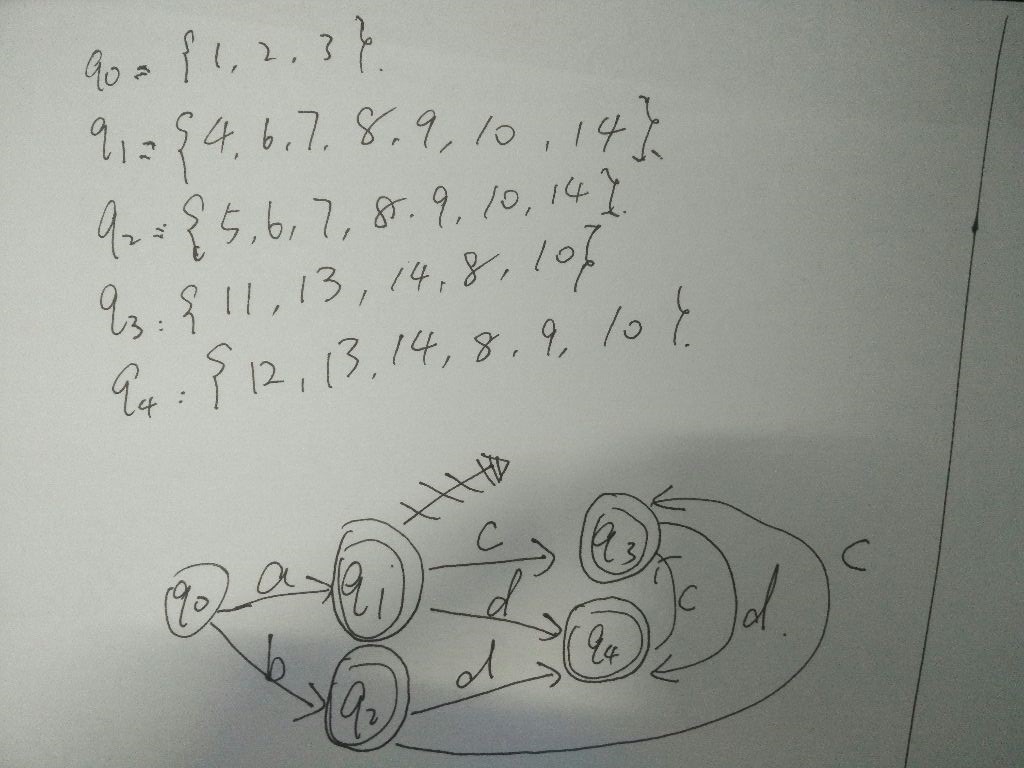 q0 = { 1, 2, 3 }.
q1 = { 4, 6, 7, 8, 9, 10, 14 }.
q2 = { 5, 6, 7, 8, 9, 10, 14 }.
q3 : { 11, 13, 14, 8, 10 }
q4 : { 12, 13, 14, 8, 9, 10 }.
c q3 c
q0 a q1 d c d.
b d q4
q2